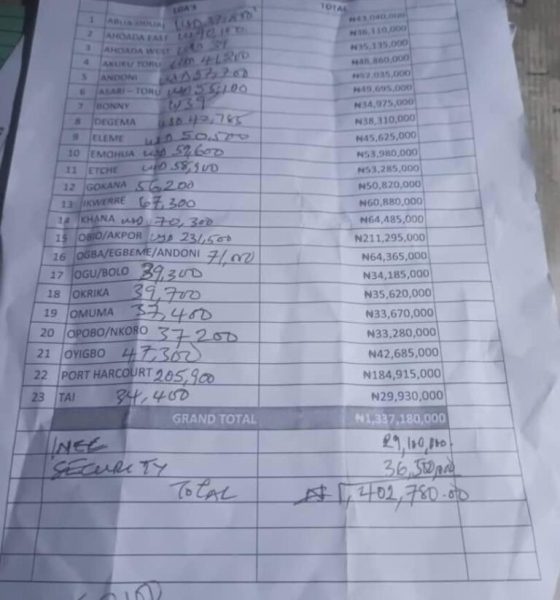 LGA'S TOTAL
1 ABUA/ODUAL USD 37,800 ₦43,040,000
2 AHOADA EAST USD 40,100 ₦38,110,000
3 AHOADA WEST USD ₦35,135,000
4 AKUKU TORU USD 41,800 ₦48,860,000
5 ANDONI USD 57,700 ₦57,035,000
6 ASARI-TORU USD 55,100 ₦49,695,000
7 BONNY ₦34,975,000
8 DEGEMA USD 42,785 ₦38,310,000
9 ELEME USD 50,500 ₦45,625,000
10 EMOHUA USD 59,600 ₦53,980,000
11 ETCHE USD 58,900 ₦53,285,000
12 GOKANA 56,200 ₦50,820,000
13 IKWERRE 67,300 ₦60,880,000
14 KHANA USD 70,300 ₦64,485,000
15 OBIO/AKPOR USD 231,500 ₦211,295,000
16 OGBA/EGBEME/ANDONI 71,000 ₦64,365,000
17 OGU/BOLO 39,300 ₦34,185,000
18 OKRIKA 39,700 ₦35,620,000
19 OMUMA 37,400 ₦33,670,000
20 OPOBO/NKORO 37200 ₦33,280,000
21 OYIGBO 47,300 ₦42,685,000
22 PORT HARCOURT 205,900 ₦184,915,000
23 TAI 34,400 ₦29,930,000
GRAND TOTAL ₦1,337,180,000
INEC 29,100,000
SECURITY 36,500,000
TOTAL ₦1,402,780.00